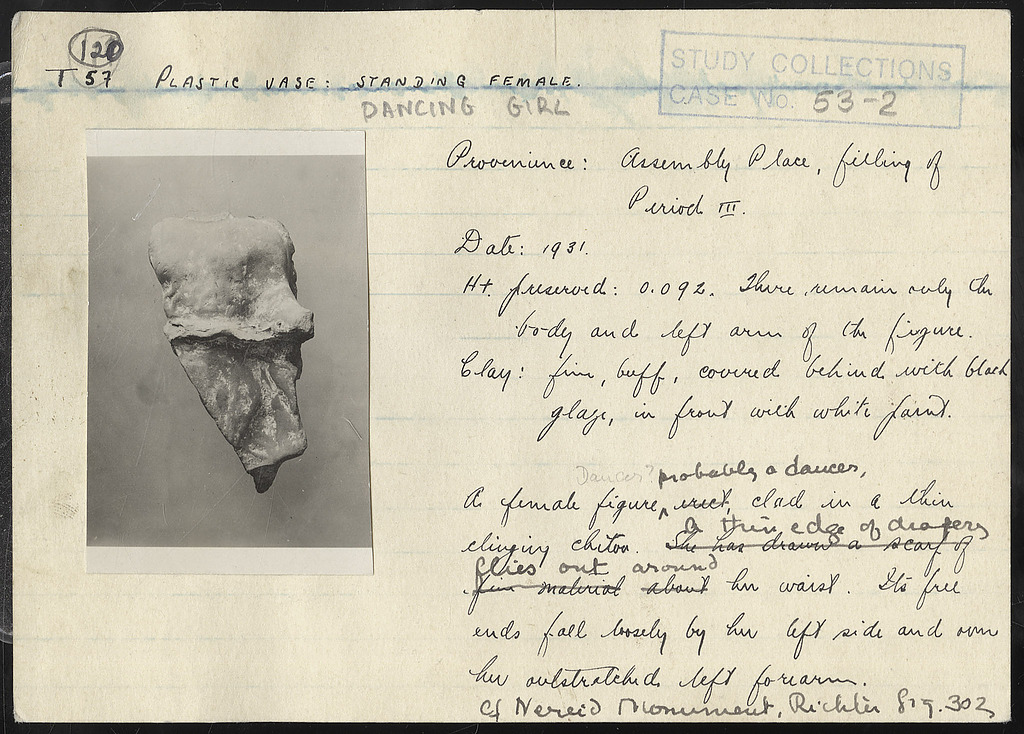 120
T 57 PLASTIC VASE: STANDING FEMALE.
DANCING GIRL
STUDY COLLECTIONS
CASE No. 53-2
Provenience: Assembly Place, filling of
Period III.
Date: 1931.
Ht. preserved: 0.092. There remain only the
body and left arm of the figure.
Clay: fine, buff, covered behind with black
glaze, in front with white paint.
Dancer? probably a dancer,
A female figure, erect, clad in a thin
A thin edge of drapery
clinging chiton. She has drawn a scarf of
flies out around
fine material about her waist. Its free
ends fall loosely by her left side and over
her outstretched left forearm.
Cf Nereid Monument, Richter fig. 302